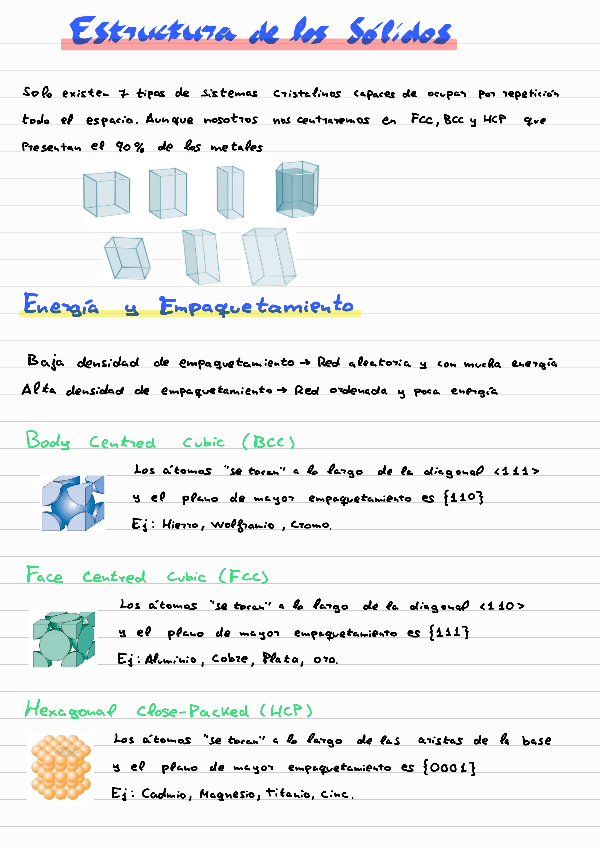 Estructura de los Sólidos
Solo existen 7 tipos de sistemas cristalinos capaces de ocupar por repetición
todo el espacio. Aunque nosotros nos centraremos en FCC, BCC y HCP que
presentan el 90% de los metales
Energía y Empaquetamiento
Baja densidad de empaquetamiento → Red aleatoria y con mucha energía
Alta densidad de empaquetamiento → Red ordenada y poca energía
Body Centred Cubic (BCC)
Los átomos "se tocan" a lo largo de la diagonal <111>
y el plano de mayor empaquetamiento es {110}
Ej: Hierro, Wolframio, Cromo.
Face Centred Cubic (FCC)
Los átomos "se tocan" a lo largo de la diagonal <110>
y el plano de mayor empaquetamiento es {111}
Ej: Aluminio, Cobre, Plata, oro.
Hexagonal Close-Packed (HCP)
Los átomos "se tocan" a lo largo de las aristas de la base
y el plano de mayor empaquetamiento es {0001}
Ej: Cadmio, Magnesio, Titanio, Cinc.